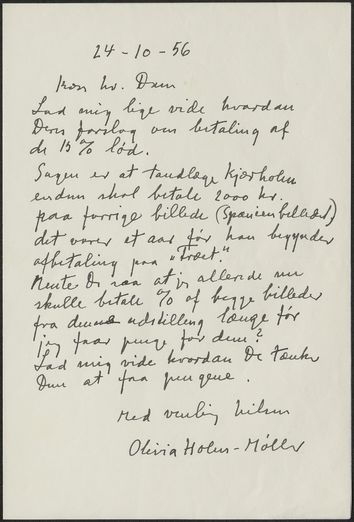 24-10-56
Kære hr. Dam
Lad mig lige vide hvordan
Deres forslag om betaling af
de 15% lød.
Sagen er at tandlæge Kjærholm
endnu skal betale 2000 kr.
paa forrige billede (Spanienbilledet)
det varer et aar før han begynder
afbetaling paa "Træet".
Mente De saa at jeg allerede nu
skulle betale % af begge billeder
fra denne udstilling længe før
jeg faar penge for dem?
Lad mig vide hvordan De tænker
Dem at faa pengene.
Med venlig hilsen
Olivia Holm-Møller